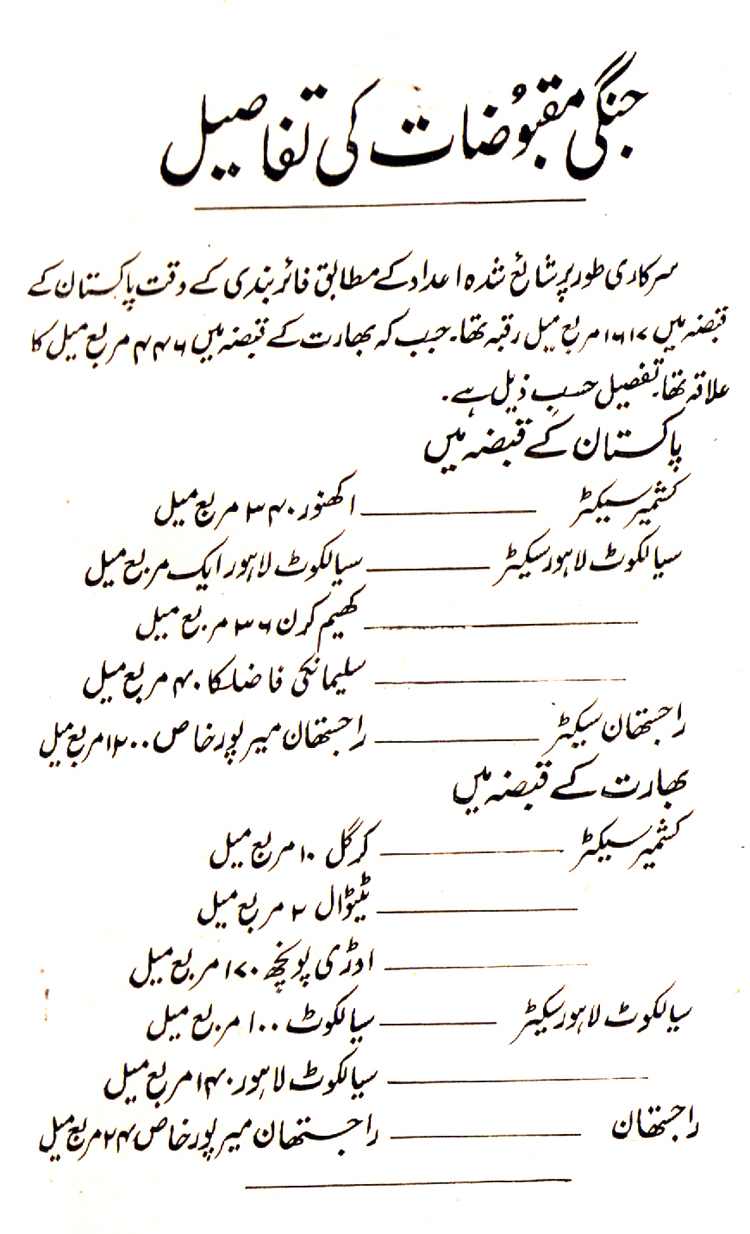 جنگی مقبوُضات کی تفاصیل
سرکاری طور پر شائع شدہ اعداد کے مطابق فائر بندی کے وقت پاکستان کے
قبضہ میں ۱۶۱۷ مربع میل رقبہ تھا۔ جب کہ بھارت کے قبضہ میں ۴۴۶ مربع میل کا
علاقہ تھا۔ تفصیل حسبِ ذیل ہے۔
پاکستان کے قبضہ میں
کشمیر سیکٹر ——— اکھنور ۳۴۰ مربع میل
سیالکوٹ لاہور سیکٹر ——— سیالکوٹ لاہور ایک مربع میل
——— کھیم کرن ۳۶ مربع میل
——— سلیمانکی فاضلکا ۴۰ مربع میل
راجستھان سیکٹر ——— راجستھان میرپور خاص ۱۲۰۰ مربع میل
بھارت کے قبضہ میں
کشمیر سیکٹر ——— کرگل ۱۰ مربع میل
——— ٹیٹوال ۲ مربع میل
——— اوڑی پونچھ ۱۷۰ مربع میل
سیالکوٹ لاہور سیکٹر ——— سیالکوٹ ۱۰۰ مربع میل
——— سیالکوٹ لاہور ۱۴۰ مربع میل
راجستھان ——— راجستھان میرپور خاص ۲۴ مربع میل